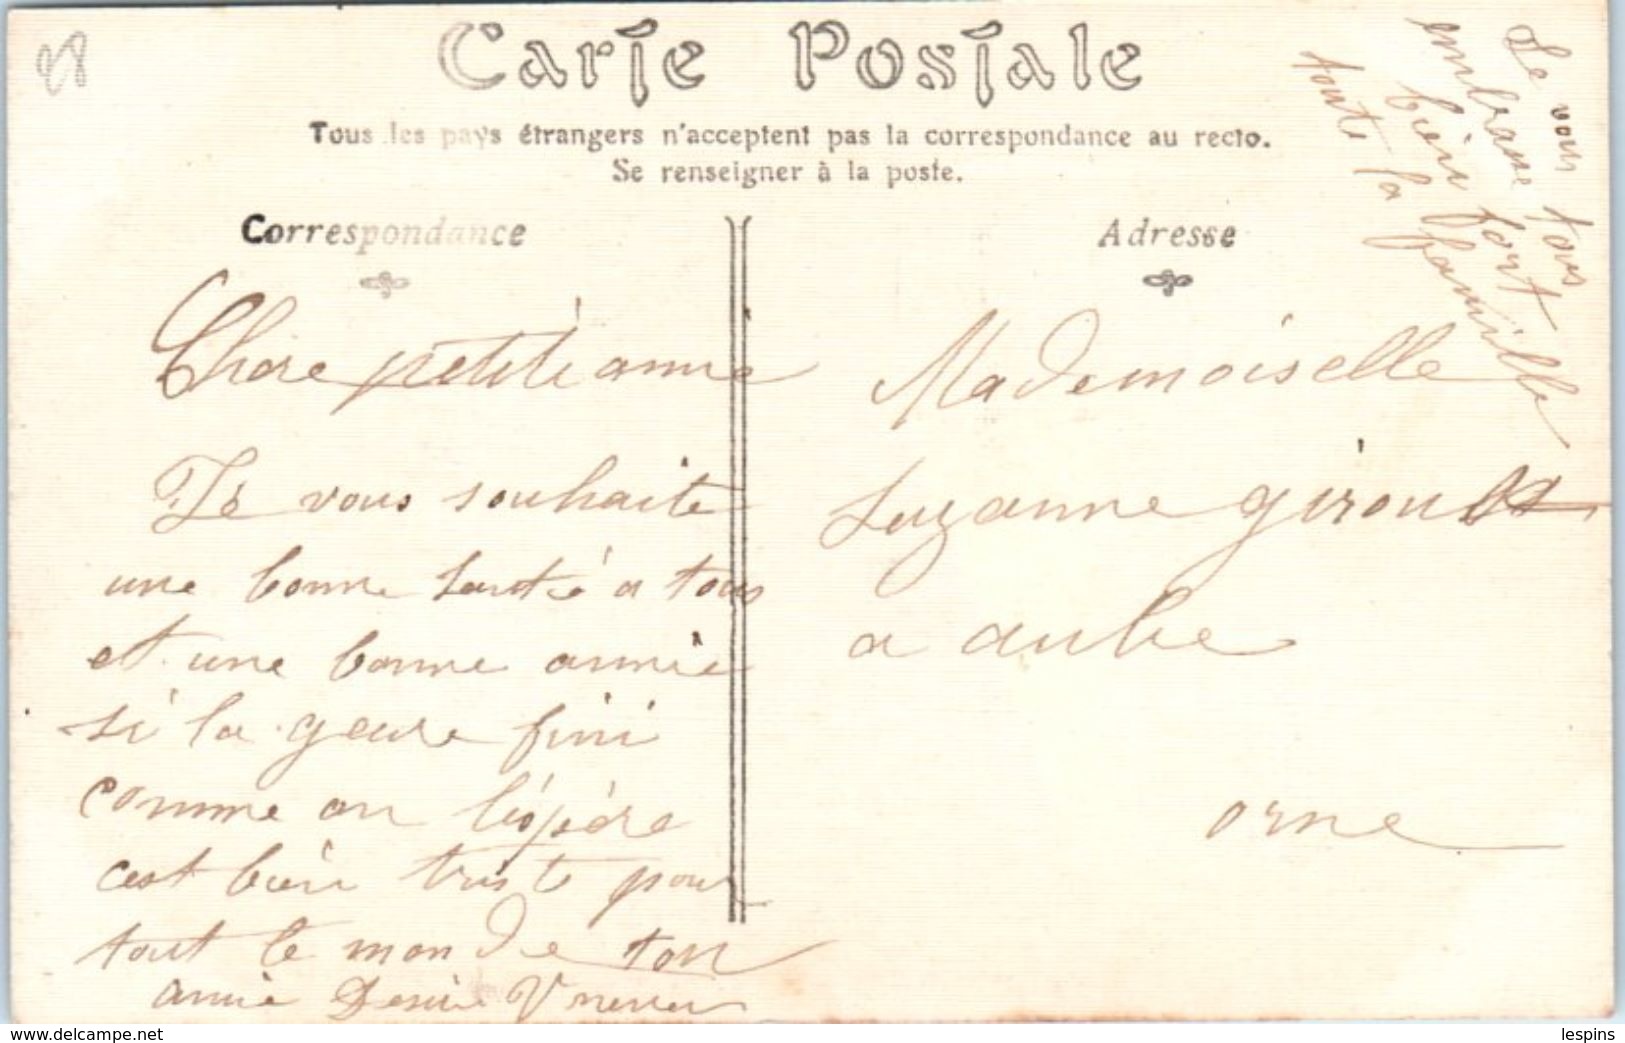 Carte Postale
Tous les pays étrangers n'acceptent pas la correspondance au recto.
Se renseigner à la poste.
Correspondance
Adresse
28
Chere petite amie
Je vous souhaite
une bonne santé a tous
et une bonne année
si la geure fini
comme on l'éspére
cest bien triste pour
tout le monde ton
amie Desirée
Mademoiselle
Suzanne giroux
a aube
orne
Je vous tous
embrasse fort
bien
toute la famille
lespins